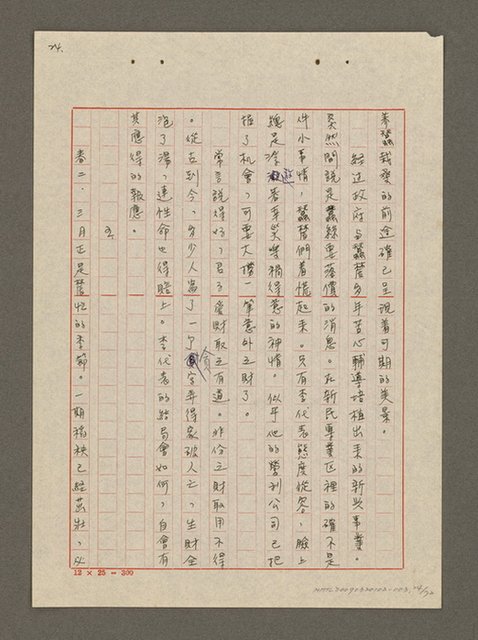 24.
養蠶栽桑的前途確已呈現着可期的美景。
經過政府与蠶農多年苦心輔導培植出來的新興事業。
突然聞說是蠶絲要落價的消息。在新民專業區裡的確不是
件小事情,蠶農們着慌起來。只有李代表態度從容,臉上
總是深藏着幸災樂禍得意的神情。似乎他的營利公司已把
握了机會,可要大撈一筆意外之財了。
常言說得好,君子愛財取之有道。非份之財取用不得
。從古到今,多少人為了一个貪字弄得家破人亡,生財全
泡了湯,連性命也得賠上。李代表的結局會如何,自會有
其應得的報應。
五
春二、三月正是農忙的季節。一期稻秧已經茁壯,從
12 × 25 = 300
24/72